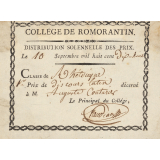 COLLEGE DE ROMORANTIN.
DISTRIBUTION SOLENNELLE DES PRIX.
Le 10 Septembre mil huit cent dix
CLASSE de Rhétorique
1er Prix de Discours latin décerné
A M. Auguste
Le Principal du Collége,